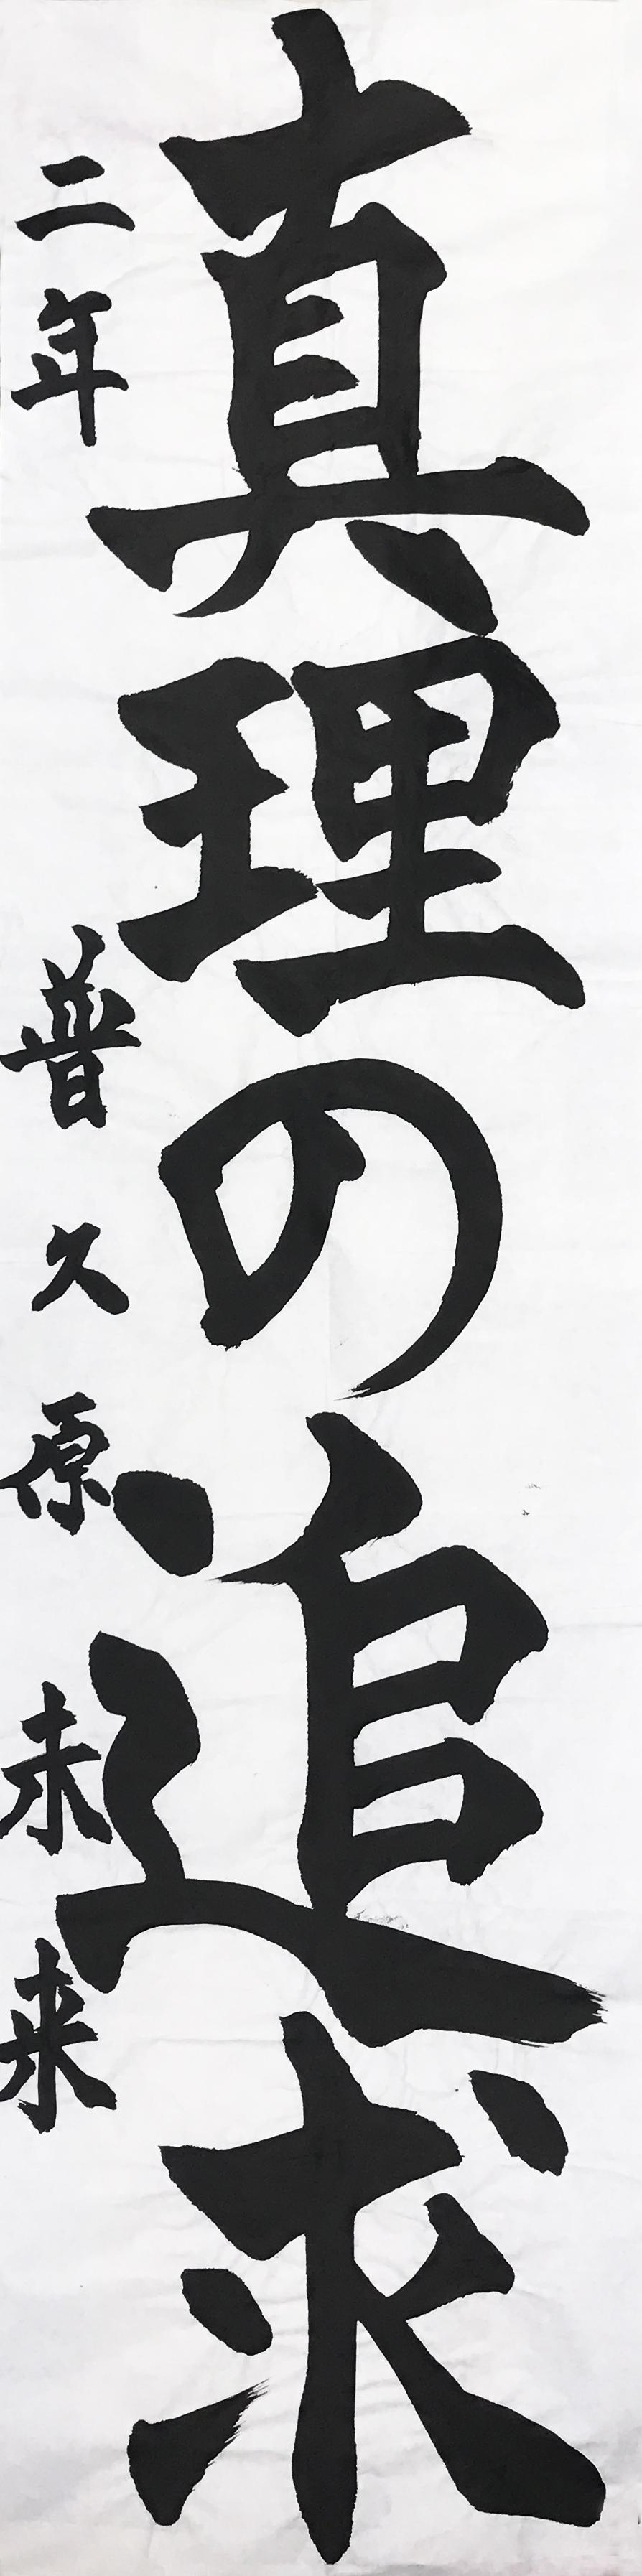 真理の追求
二年 普久原 未来